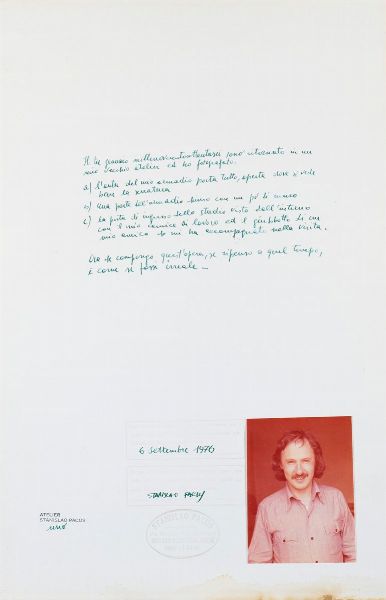 Il tre gennaio millenovecentosettantasei sono ritornato in un
mio vecchio atelier ed ho fotografato:
a) l'anta del mio armadio porta tutto, aperta dove si vede
bene la
b) una parte dell'armadio con un pò di muro
c) la porta di ingresso dello studio vista dall'interno
con il mio camice di lavoro ed il giubbotto di un
mio amico che mi ha accompagnato nella visita.
Ora che compongo quest'opera, se ripenso a quel tempo,
è come se fosse irreale –
6 settembre 1976
STANISLAO PACUS
STANISLAO PACUS
ATELIER
STANISLAO PACUS
uno